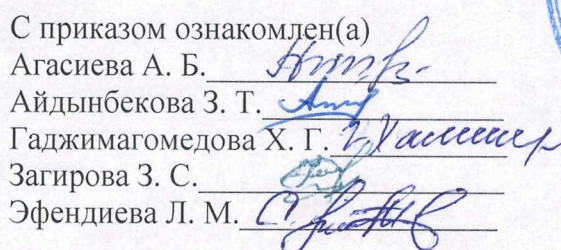 С приказом ознакомлен(а)
Агасиева А. Б.
Айдынбекова З. Т.
Гаджимагомедова Х. Г.
Загирова З. С.
Эфендиева Л. М.